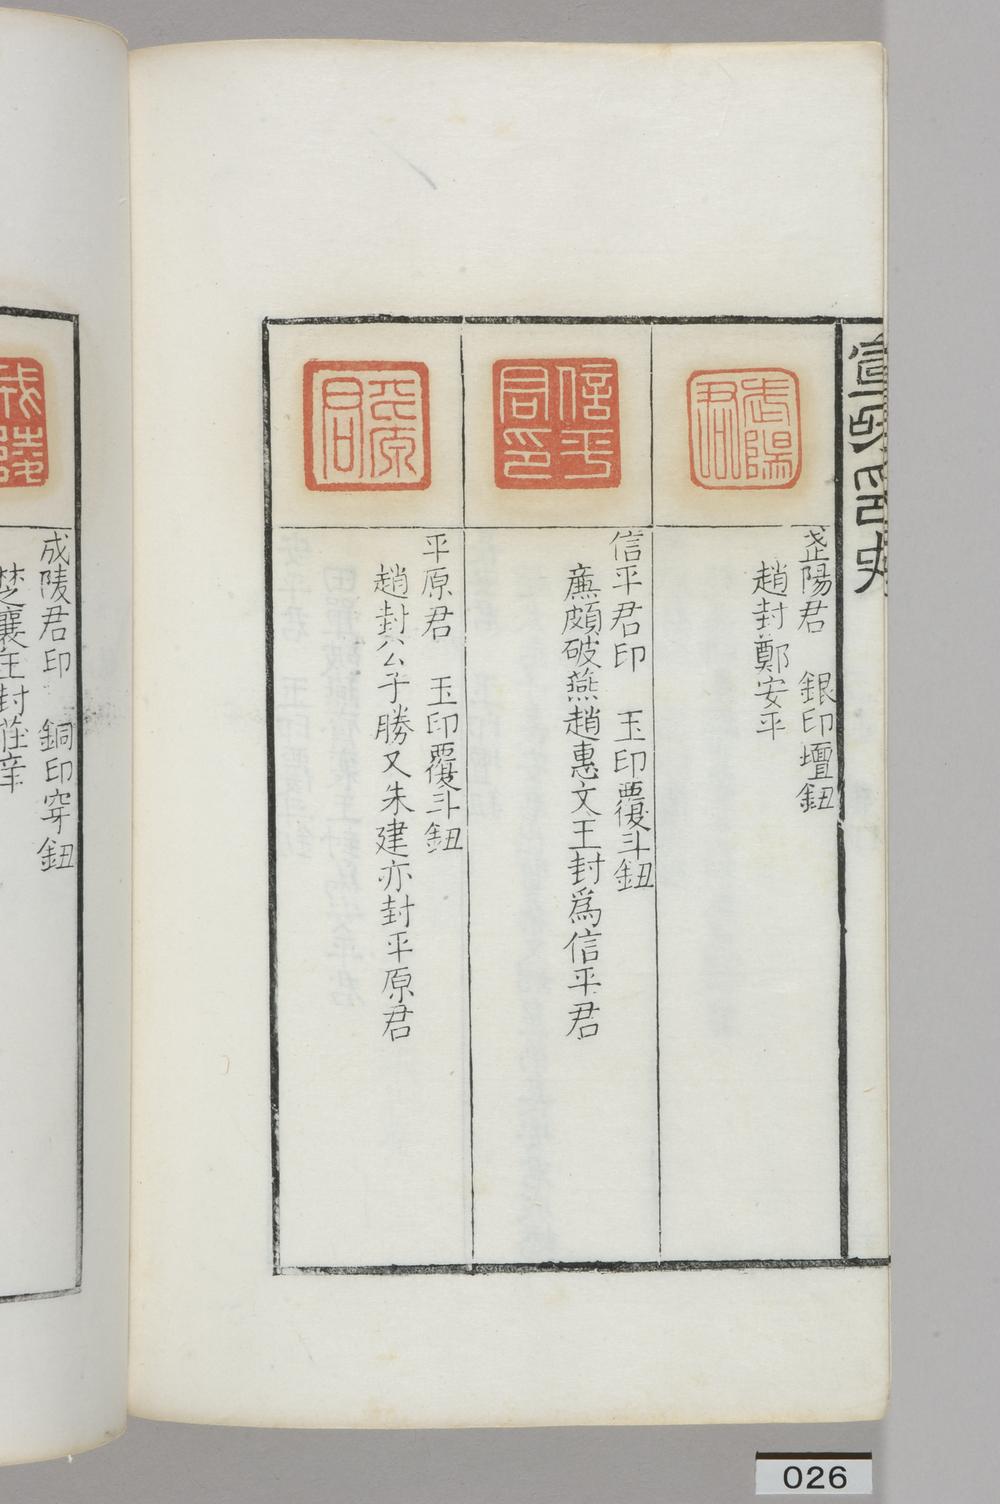 宣和印史
武陽君
武陽君　銀印壇鈕
趙封鄭安平
信平君印
信平君印　玉印覆斗鈕
廉頗破燕趙惠文王封爲信平君
平原君
平原君　玉印覆斗鈕
趙封公子勝又朱建亦封平原君
成陵君印　銅印穿鈕
楚襄王封莊辛
026